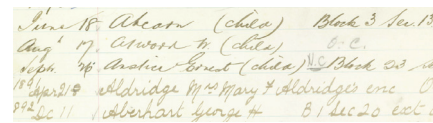 June 18 Ahearn (child) Block 3 Sec. 13
Aug 17. Aswood W. (child) O.C.
Sept. 26 Ernest (child) N.C. Block 23
189 Apr 21 Aldridge Mrs Mary F Aldridge's enc O
1892 Dec 11 Aberhart George H B1 Sec 20 ext